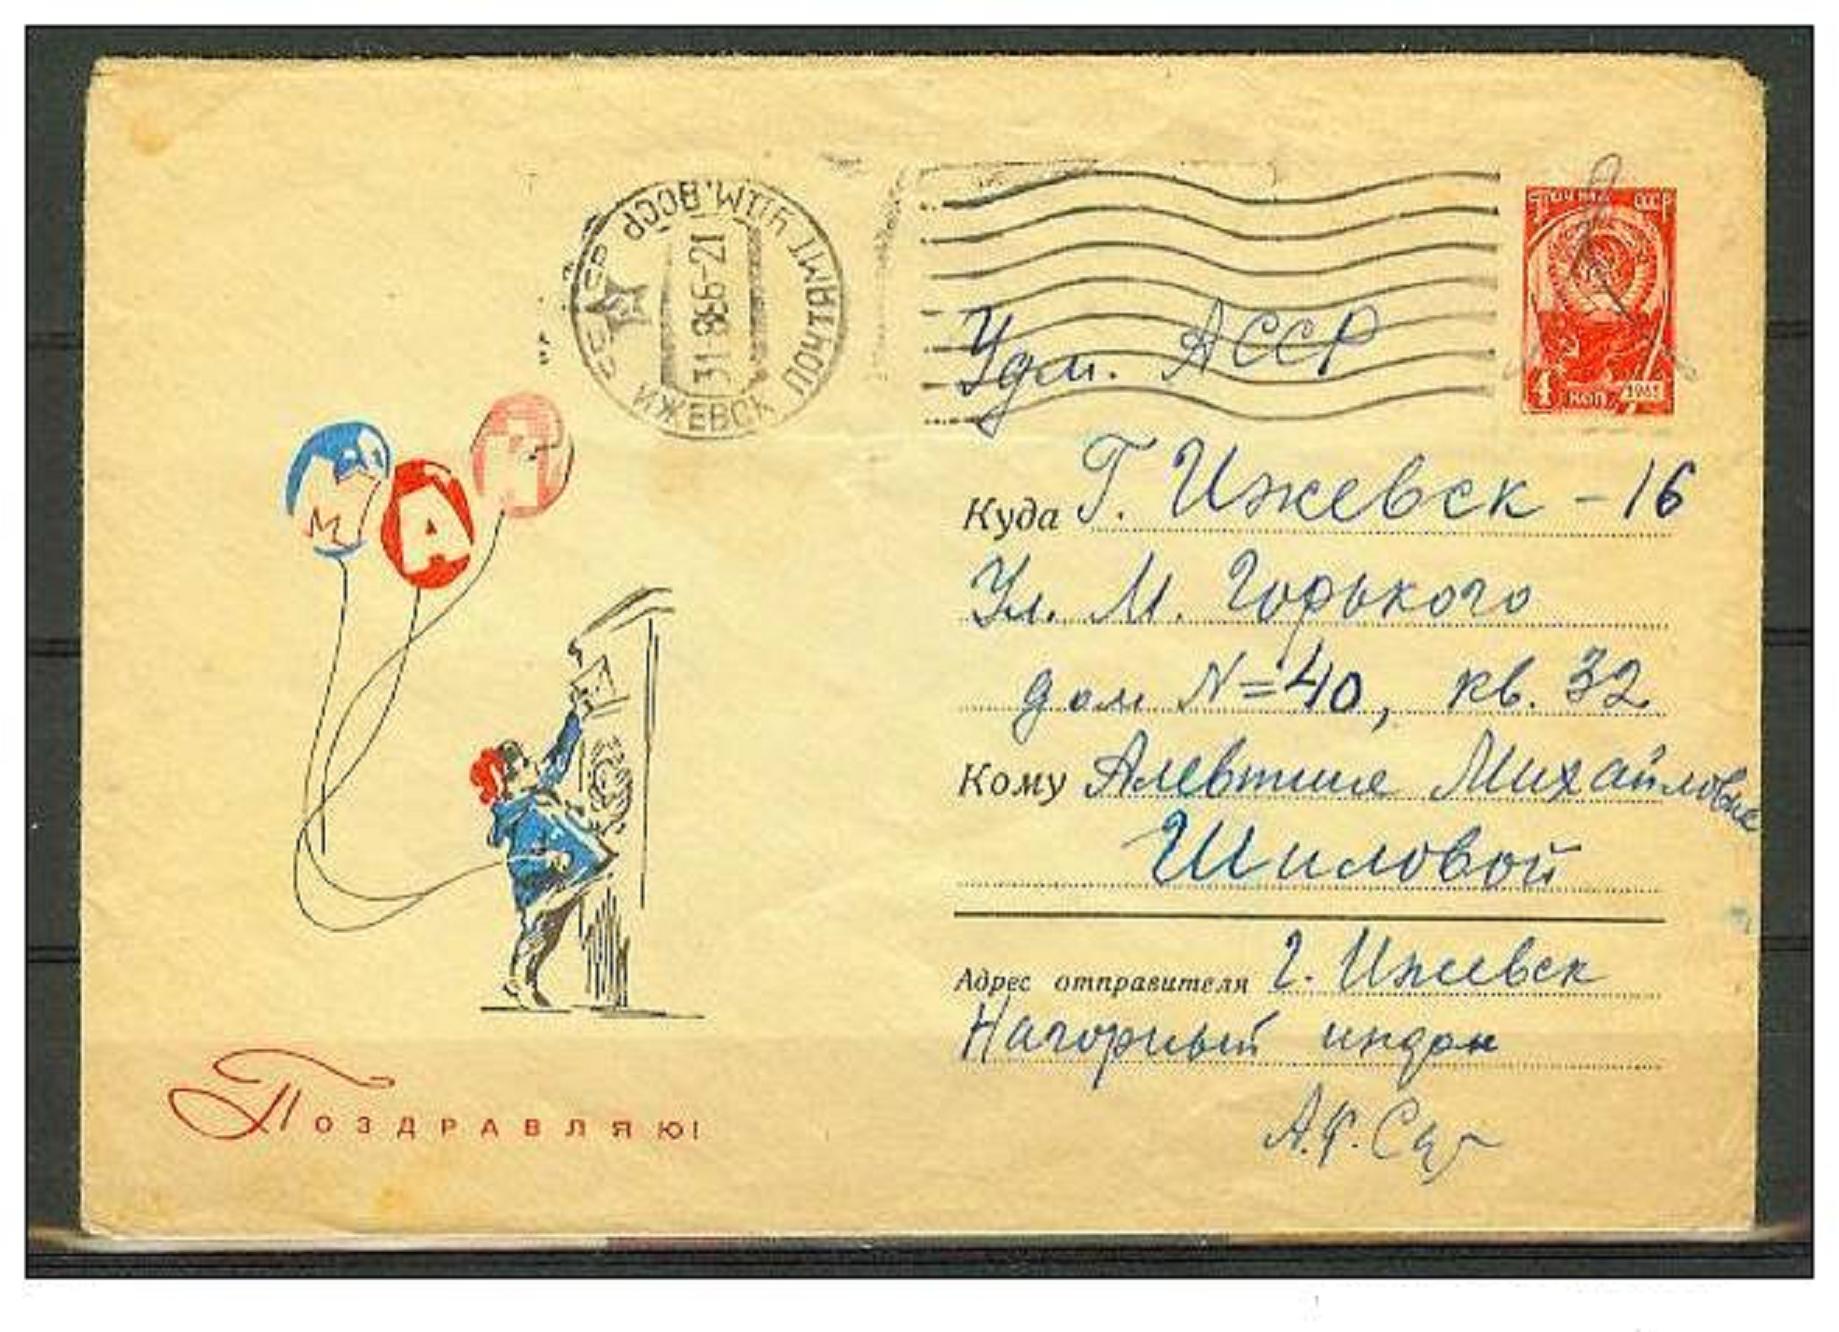 ИЖЕВСК ПОЧТАМТ УДМ. АССР
31-866-21
ПОЧТА СССР
4 КОП 1961
М А Й
Удм. АССР
Куда Г. Ижевск - 16
Ул. М. Горького
дом N=40, кв. 32
Кому Алевтине Михайловне
Шиловой
Адрес отправителя г. Ижевск
Нагорный
А.Ф.
Поздравляю!